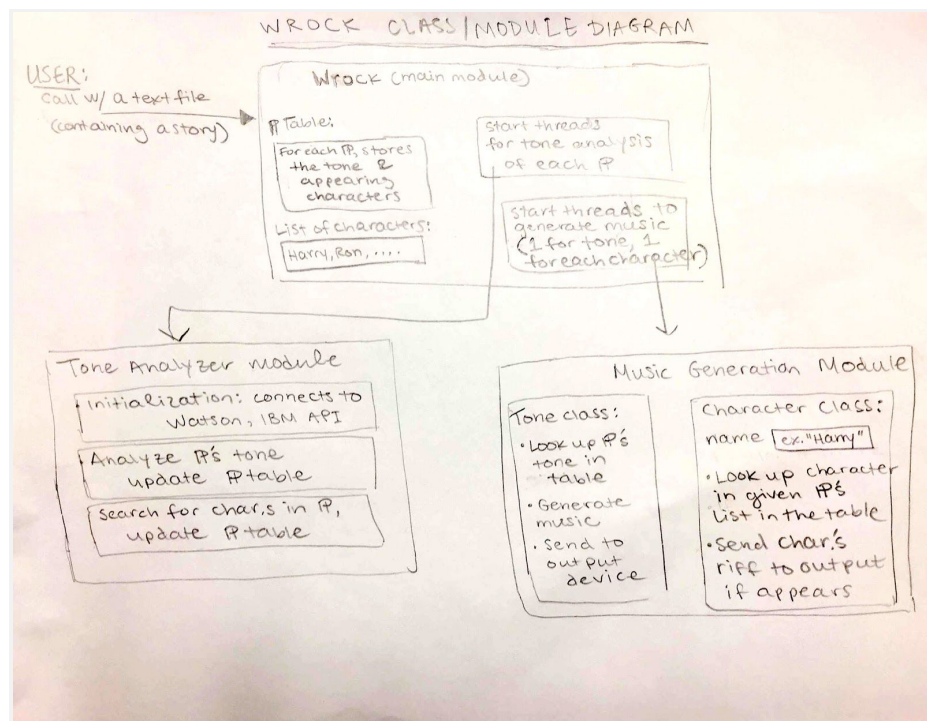 WROCK CLASS/MODULE DIAGRAM
USER:
call w/ a text file
(containing a story)
Wrock (main module)
¶ Table:
For each ¶, stores
the tone &
appearing
characters
List of characters:
Harry, Ron, ....
start threads
for tone analysis
of each ¶
start threads to
generate music
(1 for tone, 1
for each character)
Tone Analyzer module
• initialization: connects to
Watson, IBM API
• Analyze ¶'s tone
update ¶ table
search for char.s in ¶,
update ¶ table
Music Generation Module
Tone class:
• Look up ¶'s
tone in
table
• Generate
music
• Send to
output
device
Character Class:
name ex. "Harry"
• Look up character
in given ¶'s
list in the table
• Send char.'s
riff to output
if appears